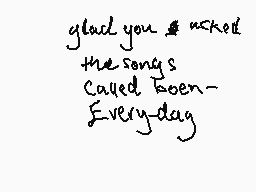 glad you asked
the songs
called boen-
Every-day